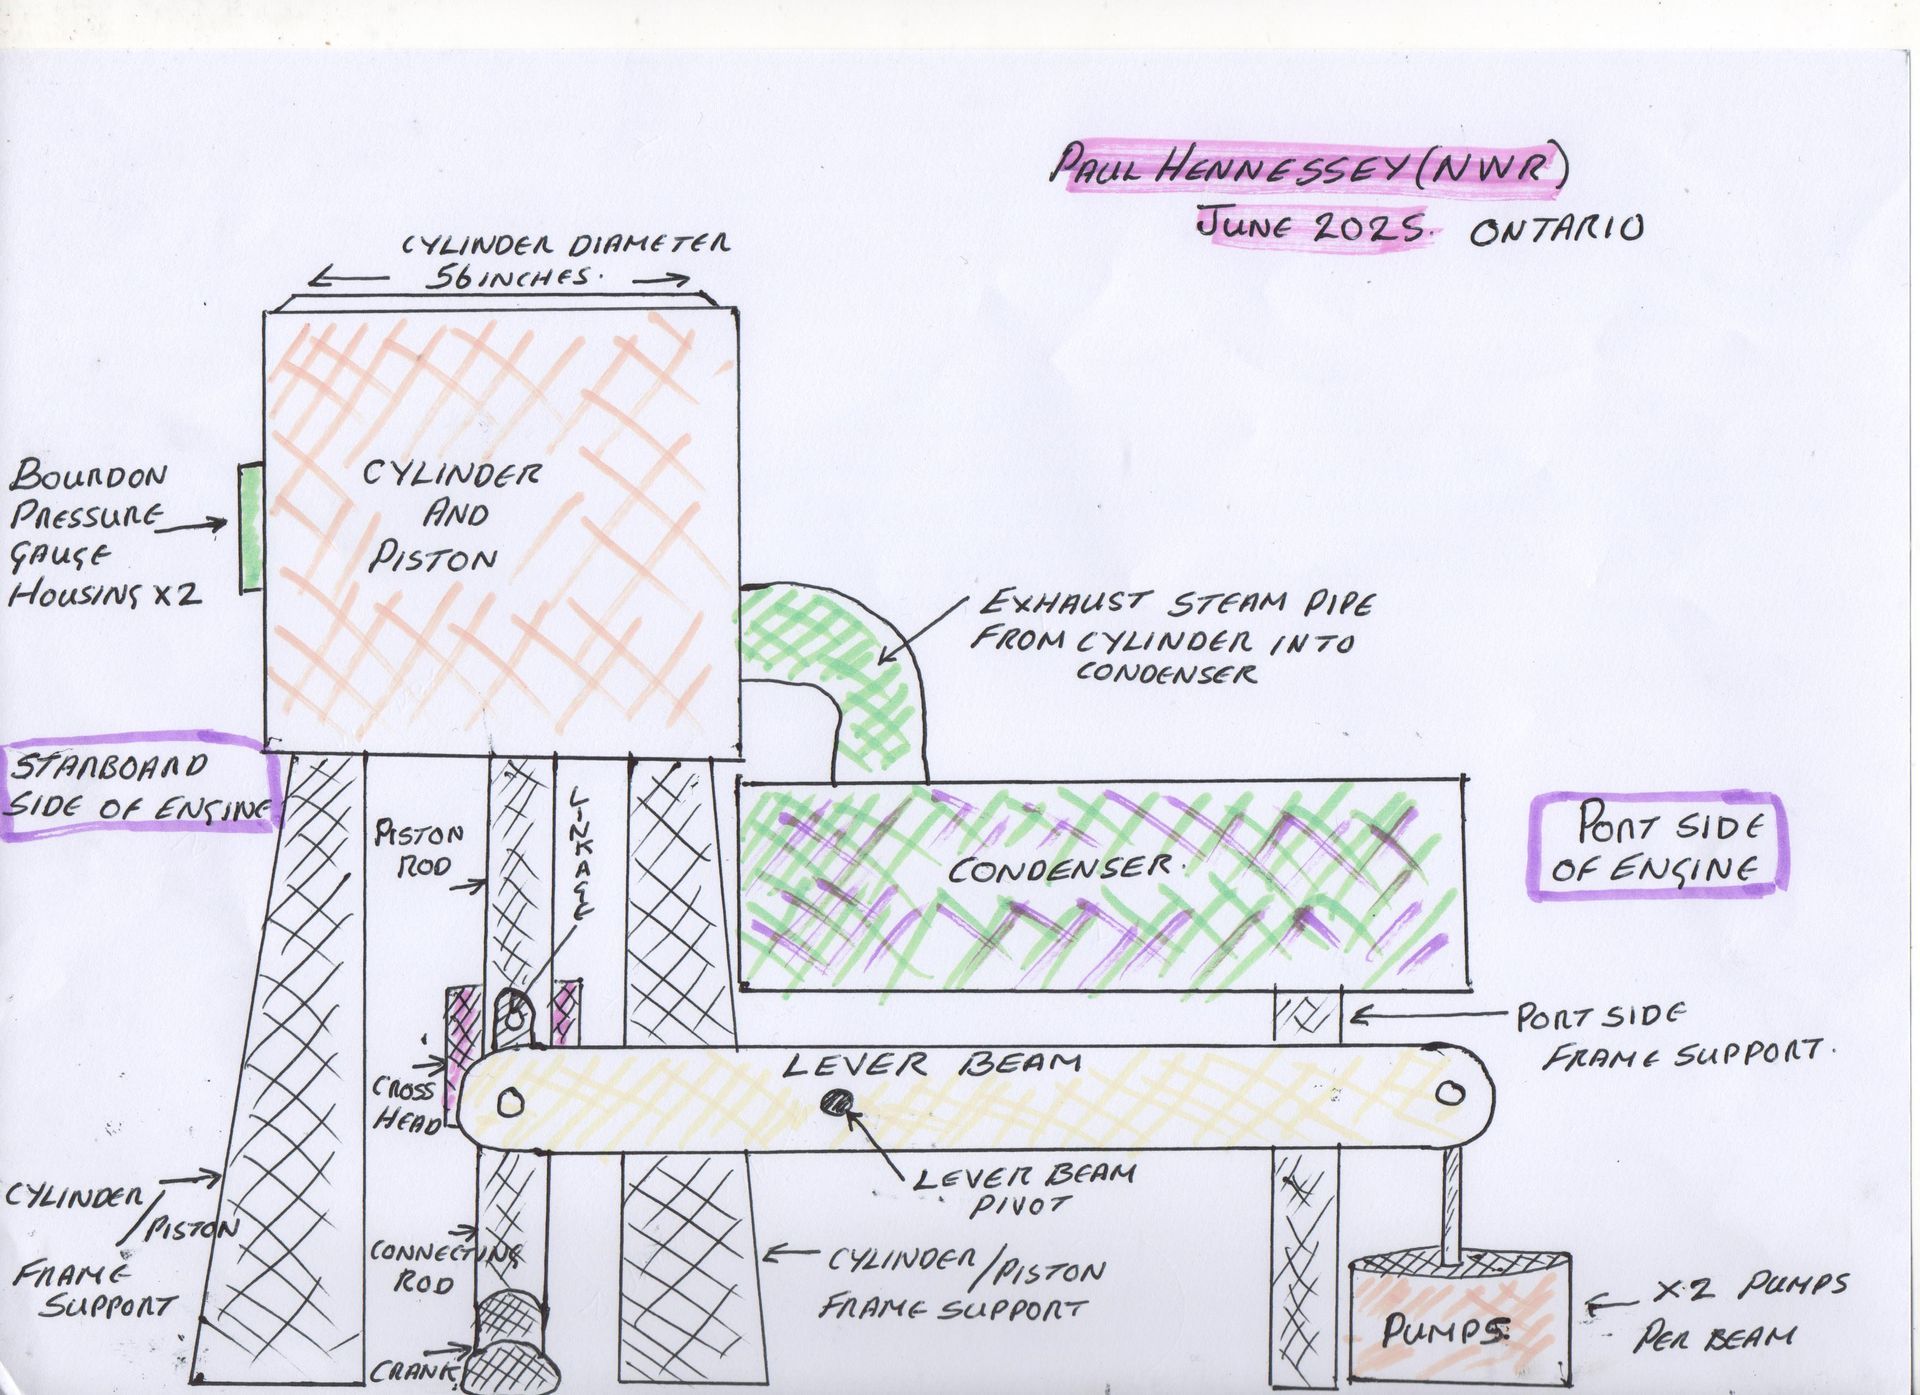 PAUL HENNESSEY (NWR)
JUNE 2025. ONTARIO
CYLINDER DIAMETER
56 INCHES.
CYLINDER
AND
PISTON
BOURDON
PRESSURE
GAUGE
HOUSING X2
EXHAUST STEAM PIPE
FROM CYLINDER INTO
CONDENSER
STARBOARD
SIDE OF ENGINE
PISTON
ROD
LINKAGE
CONDENSER.
PORT SIDE
OF ENGINE
PORT SIDE
FRAME SUPPORT.
LEVER BEAM
CROSS
HEAD
LEVER BEAM
PIVOT
CYLINDER
/PISTON
FRAME
SUPPORT
CONNECTING
ROD
CYLINDER/PISTON
FRAME SUPPORT
CRANK
PUMPS.
X2 PUMPS
PER BEAM